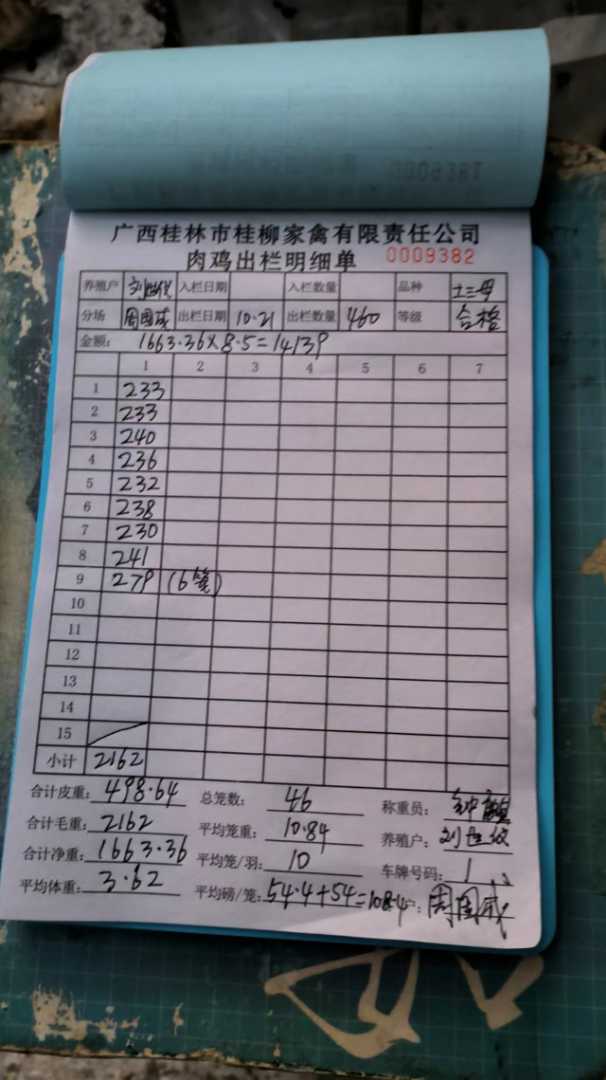 广西桂林市桂柳家禽有限责任公司
肉鸡出栏明细单 0009382
养殖户 入栏日期 入栏数量 品种 土三号
分场 周国成 出栏日期 10.21 出栏数量 460 等级 合格
金额: 1663.36×8.5=14139
1 2 3 4 5 6 7
1 233
2 233
3 240
4 236
5 232
6 238
7 230
8 241
9 279 (6笼)
10
11
12
13
14
15
小计 2162
合计皮重: 498.64 总笼数: 46 称重员:
合计毛重: 2162 平均笼重: 10.84 养殖户:
合计净重: 1663.36 平均笼/羽: 10 车牌号码: 1
平均体重: 3.62 平均磅/笼: 54.4+54=108.4 周国成